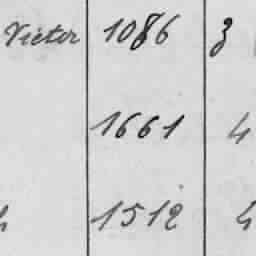 Victor 1086 3
1661 4
1512 4